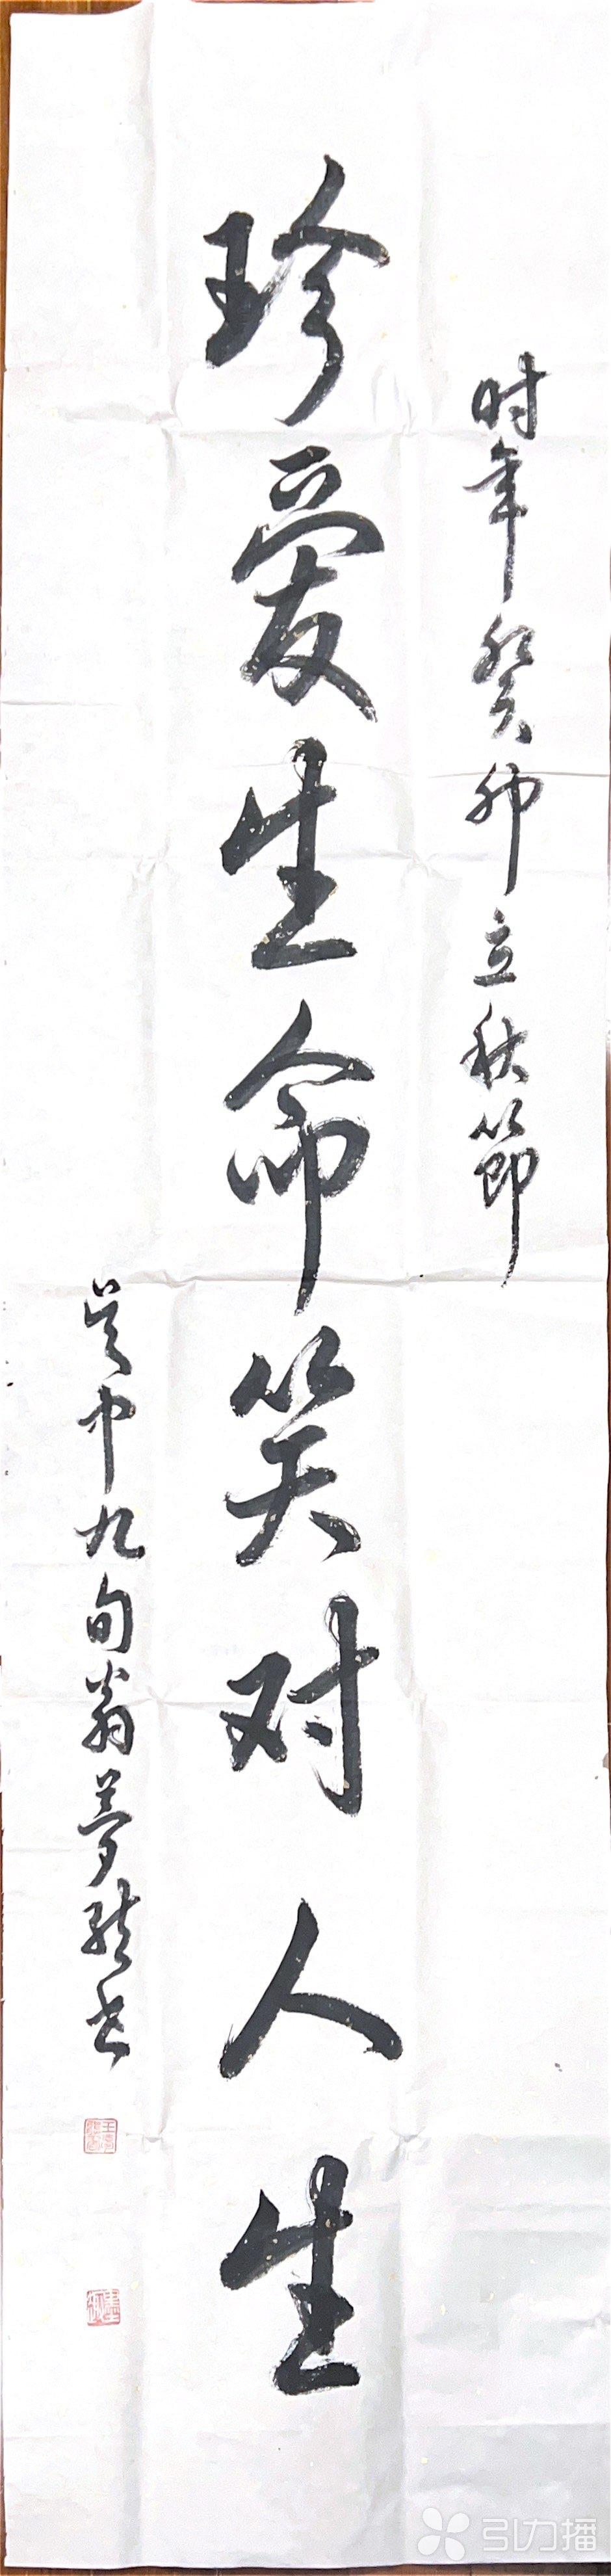 时年癸卯立秋节
珍爱生命笑对人生
吴中九旬翁梦龙书
引力播